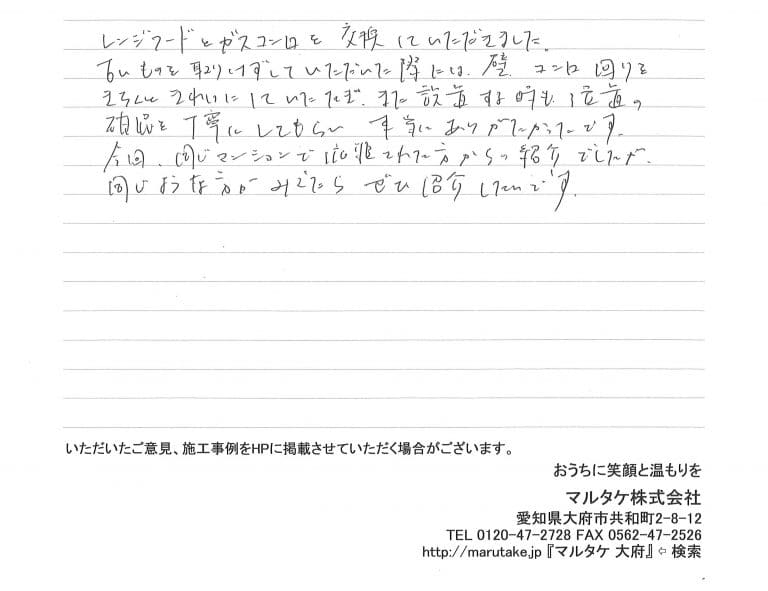 レンジフードとガスコンロを交換していただきました。
古いものを取りはずしていただいた際には、壁、コンロ回りを
きちんときれいにしていただき、また設置する時も位置の
確認を丁寧にしてもらい本当にありがたかったです。
今回、同じマンションで依頼された方からの紹介でしたが、
同じような方がみえたらぜひ紹介したいです。
いただいたご意見、施工事例をHPに掲載させていただく場合がございます。
おうちに笑顔と温もりを
マルタケ株式会社
愛知県大府市共和町2-8-12
TEL 0120-47-2728 FAX 0562-47-2526
http://marutake.jp『マルタケ 大府』⇦ 検索